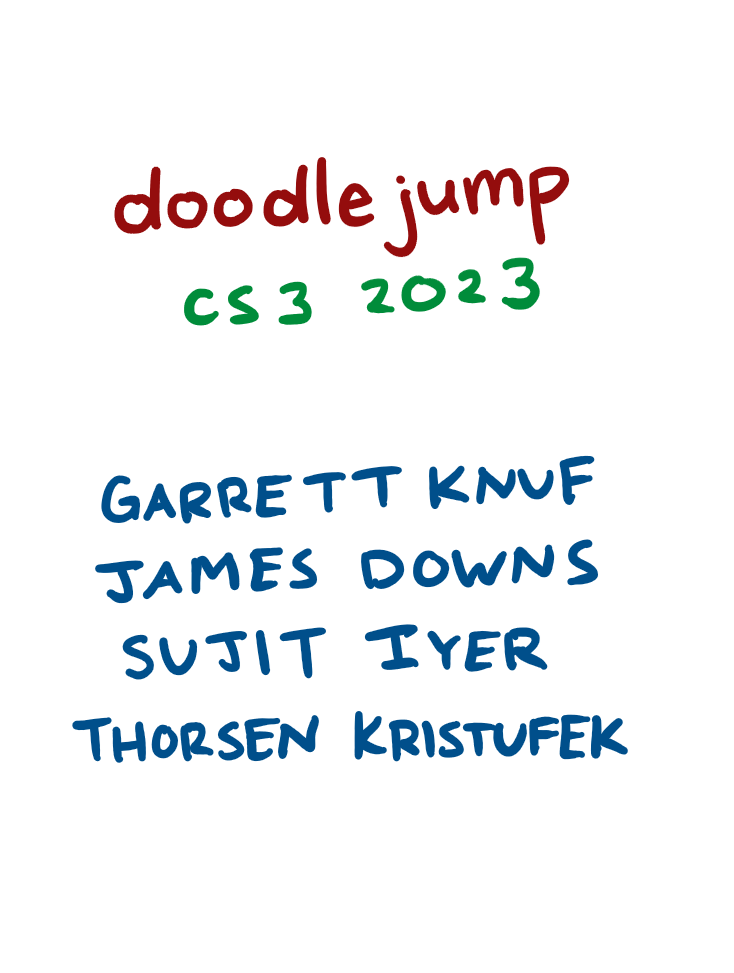 doodle jump
CS3 2023
GARRETT KNUF
JAMES DOWNS
SUJIT IYER
THORSEN KRISTUFEK